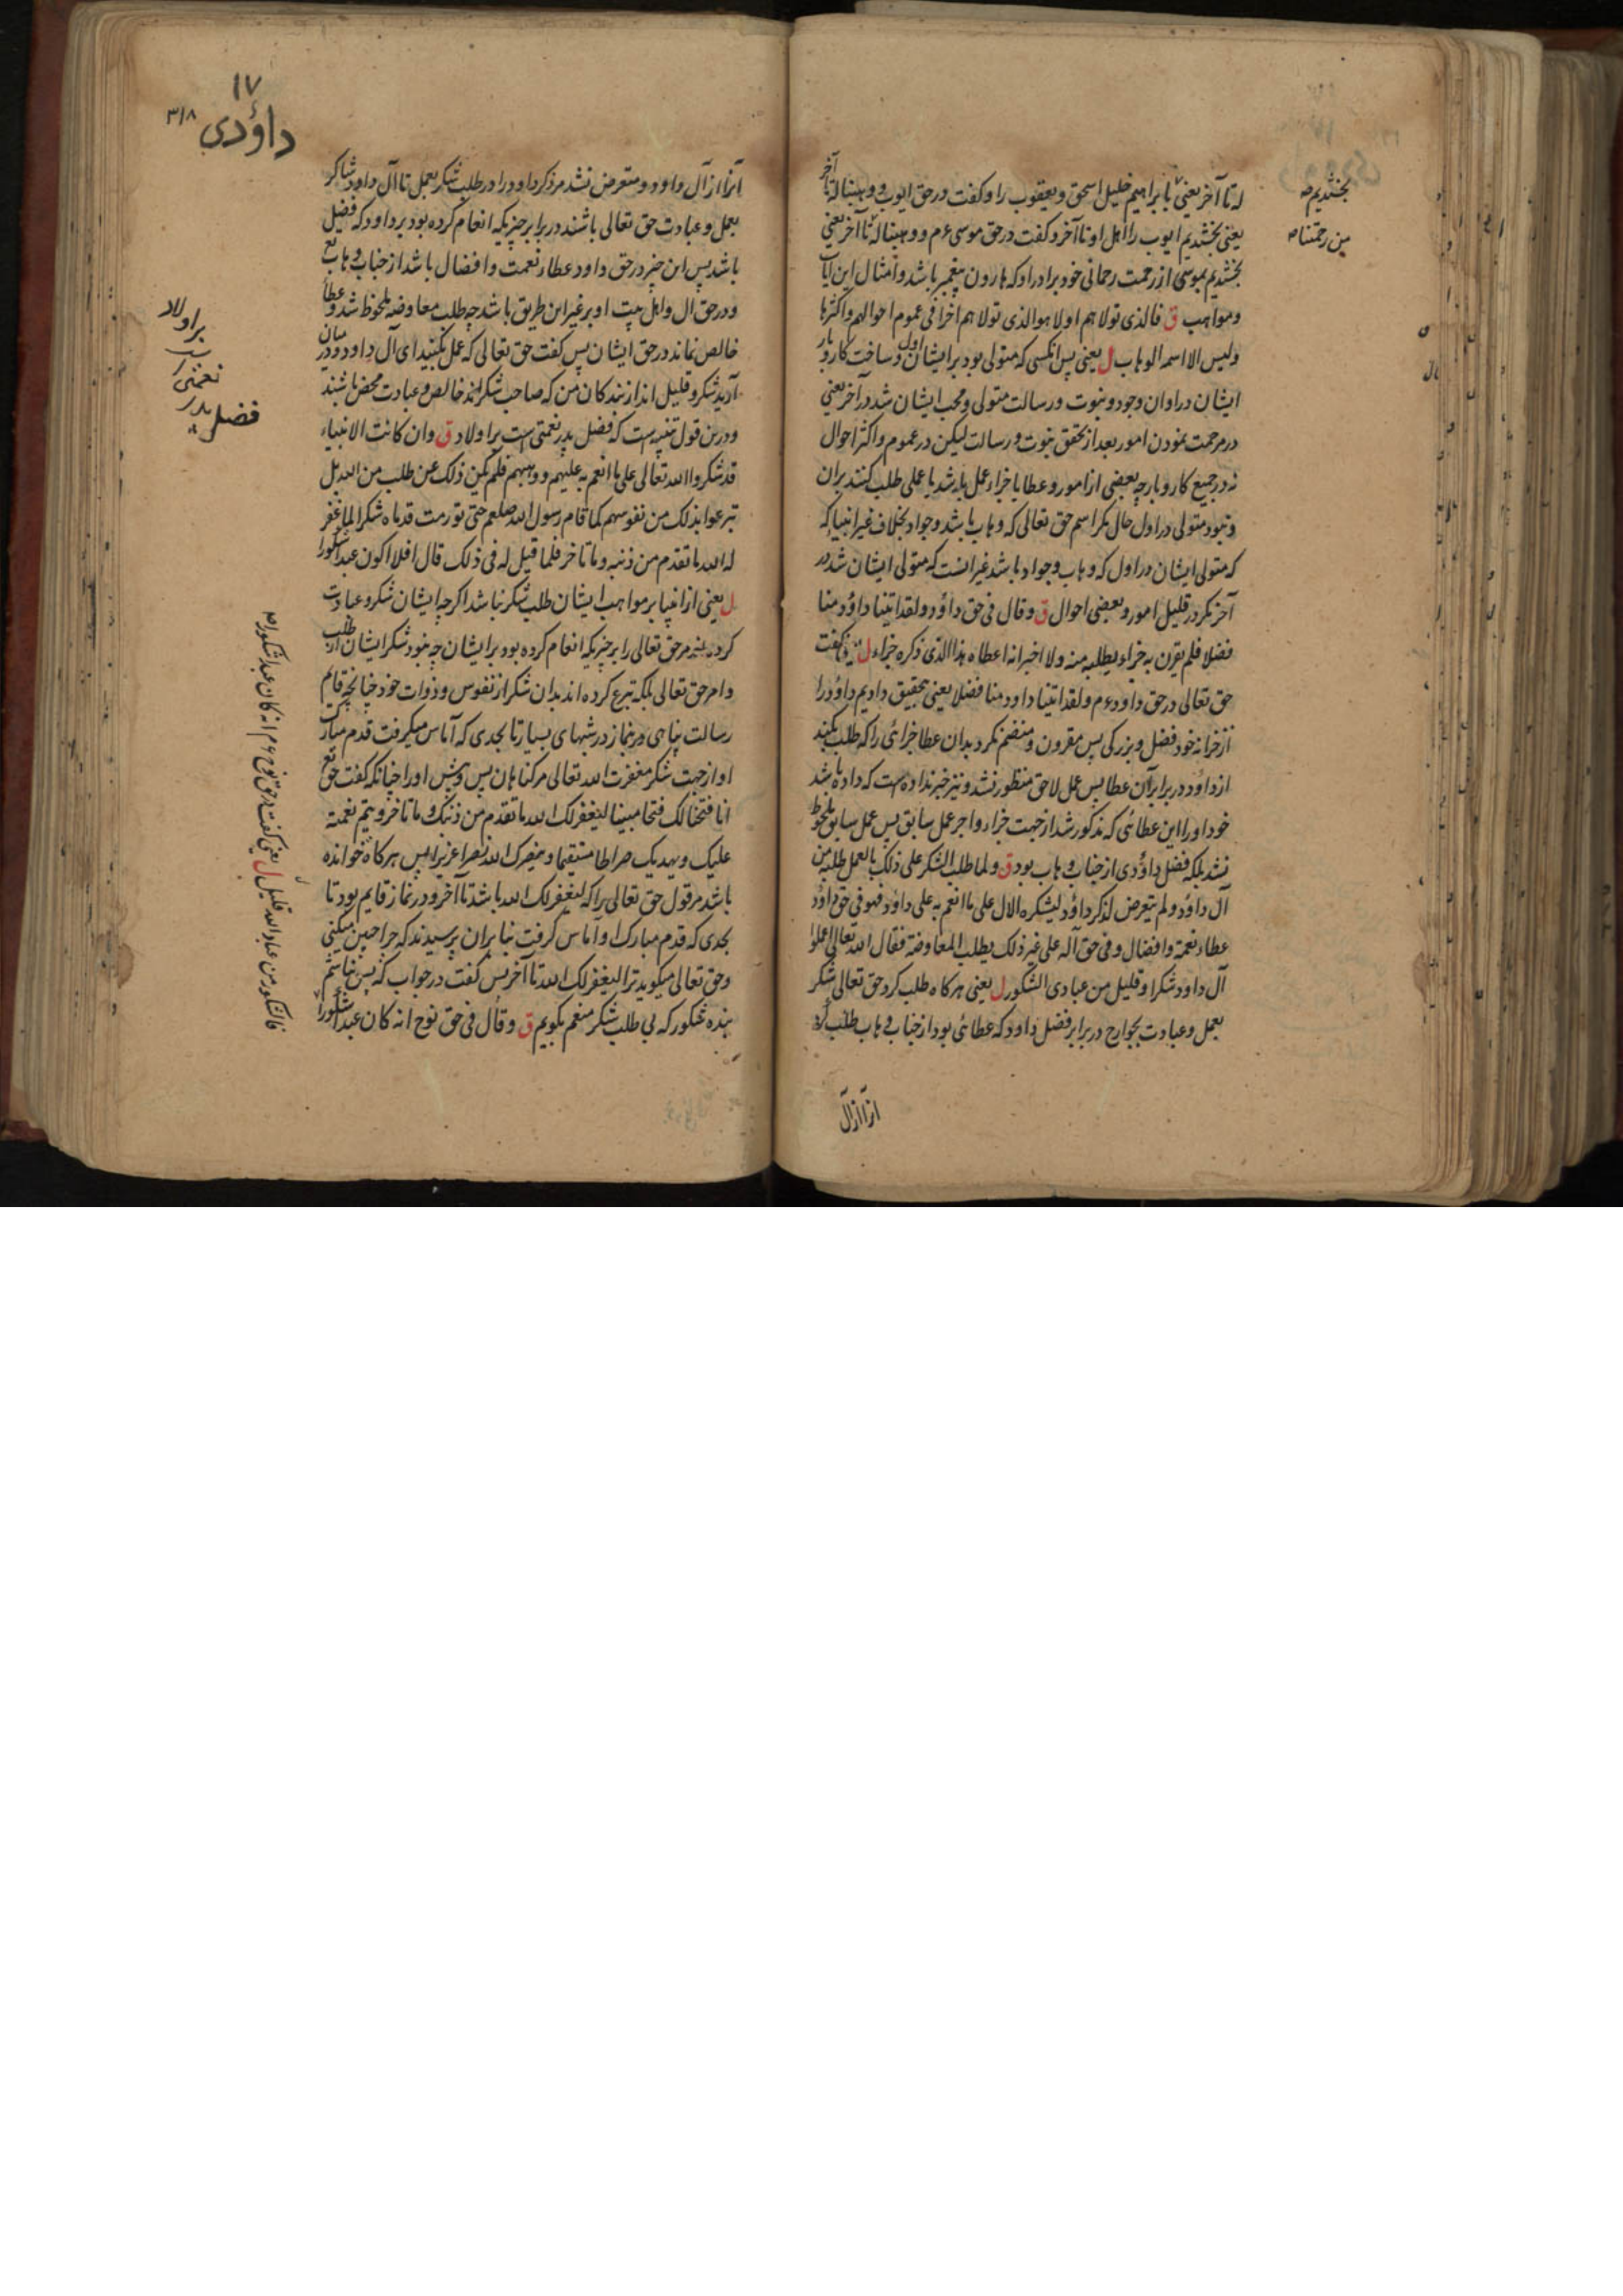 له تا آخر یعنی با براهیم خلیل اسحق و یعقوب را و گفت در حق ایوب و وهبنا له تا آخر
یعنی بخشدیم ایوب را اهل او تا آخر و گفت در حق موسی ء م و وهبنا له تا آخر یعنی
بخشدیم بموسی از رحمت رحمانی خود برادر او که هارون پیغمبر باشد و امثال این آیات
ومواهب ق فالذی تولاهم اولا هو الذی تولاهم اخرا فی عموم احوالهم واکثرها
ولیس الا اسمه الوهاب ل یعنی پس انکسی که متولی بود بر ایشان اول و ساخت کار و بار
ایشان در اوان وجود و نبوت و رسالت متولی و محب ایشان شد در آخر یعنی
در مرحمت نمودن امور بعد از تحقق نبوت و رسالت لیکن در عموم و اکثر احوال
نه در جمیع کار و بار چه بعضی از امور و عطایا جزاء عمل باشد یا عملی طلب کنند بران
و نبود متولی در اول حال مگر اسم حق تعالی که وهاب باشد و جواد بخلاف غیر انبیا که
که متولی ایشان در اول که وهاب و جواد باشد غیر انست که متولی ایشان شد در
آخر مگر در قلیل امور و بعضی احوال ق وقال فی حق داؤد ولقد اتینا داؤد منا
فضلا فلم یقرن به جزاء یطلبه منه ولا اخبر انه اعطاه هذا الذی ذکره جزاء ل یعنی گفت
حق تعالی در حق داود ء م ولقد اتینا داود منا فضلا یعنی بتحقیق دادیم داؤد را
از خزانه خود فضل و بزرکی پس مقرون و منضم نکرد بدان عطا جزائی را که طلب بکند
از داؤد در برابر آن عطا پس عمل لاحق منظور نشد و نیز خبر نداده است که داده باشد
خود او را این عطائی که مذکور شد از جهت جزاء و اجر عمل سابق پس عمل سابق ملحوظ
نشد بلکه فضل داؤدی از جناب وهاب بود ق ولما طلب الشکر علی ذلک بالعمل طلبه من
آل داؤد ولم یتعرض لذکر داؤد لیشکره الال علی ما انعم به علی داؤد فهو فی حق داؤد
عطاء نعمة وافضال وفی حق آله علی غیر ذلک بطلب المعاوضة فقال الله تعالی اعملوا
آل داود شکرا وقلیل من عبادی الشکور ل یعنی هرکاه طلب کرد حق تعالی شکر
بعمل و عبادت بجوارح در برابر فضل داود که عطائی بود از جناب وهاب طلب کرد
انرا از آل
بخشدیم ص
من رحمتنا ص
۱۷
داؤدی ۳۱۸
انرا از آل داود و متعرض نشد مر ذکر داود را در طلب شکر بعمل تا آل داود شاکر
بعمل و عبادت حق تعالی باشند در برابر چیزیکه انعام کرده بود بر داود که فضیل
باشد پس این چیز در حق داود عطاء نعمت و افضال باشد از جناب وهاب
و در حق ال و اهل بیت او بر غیر این طریق باشد چه طلب معاوضه ملحوظ شد و عطا
خالص نماند در حق ایشان پس گفت حق تعالی که عمل بکنید ای آل داود و در میان
آرید شکر و قلیل اند از بندکان من که صاحب شکر اند خالص و عبادت محض باشند
و درین قول تنبیه است که فضل پدر نعمتی است بر اولاد ق وان کانت الانبیاء
قد شکروا الله تعالی علی ما انعم به علیهم ووهبهم فلم یکن ذلک عن طلب من الله بل
تبرعوا بذلک من نفوسهم کما قام رسول الله صلعم حتی تورمت قدماه شکرا لما غفر
له الله ما تقدم من ذنبه وما تاخر فلما قیل له فی ذلک قال افلا اکون عبدا شکورا
ل یعنی از انبیا بر مواهب ایشان طلب شکر نباشد اکرچه ایشان شکر و عبادت
کردند مر حق تعالی را بر چیزیکه انعام کرده بود بر ایشان چه نبود شکر ایشان از طلب
و امر حق تعالی بلکه تبرع کرده اند بدان شکر از نفوس و ذوات خود چنانچه قایم
رسالت پناهی در نماز در شبهای بسیار تا بحدی که آماس میکرفت قدم مبارک
او از جهت شکر مغفرت الله تعالی مر کناهان پس و پیش او را چنانکه گفت حق تع
انا فتحنا لک فتحا مبینا لیغفر لک الله ما تقدم من ذنبک وما تاخر ویتم نعمته
علیک ویهدیک صراطا مستقیما وینصرک الله نصرا عزیزا پس هرکاه خوانده
باشد مر قول حق تعالی را که لیغفر لک الله باشد تا آخر و در نماز قایم بود تا
بحدی که قدم مبارک او آماس کرفت بنا بران پرسیدند که چرا چنین میکنی
و حق تعالی میکوید ترا لیغفر لک الله تا آخر پس گفت در جواب که پس نباشم
بنده شکور که بی طلب شکر منعم بگویم ق وقال فی حق نوح انه کان عبدا شکورا
بر اولاد
نعمتی است
فضل پدر
فالشکور من عباد الله قلیل ل یعنی گفت در حق نوح ء م انه کان عبدا شکورا ص